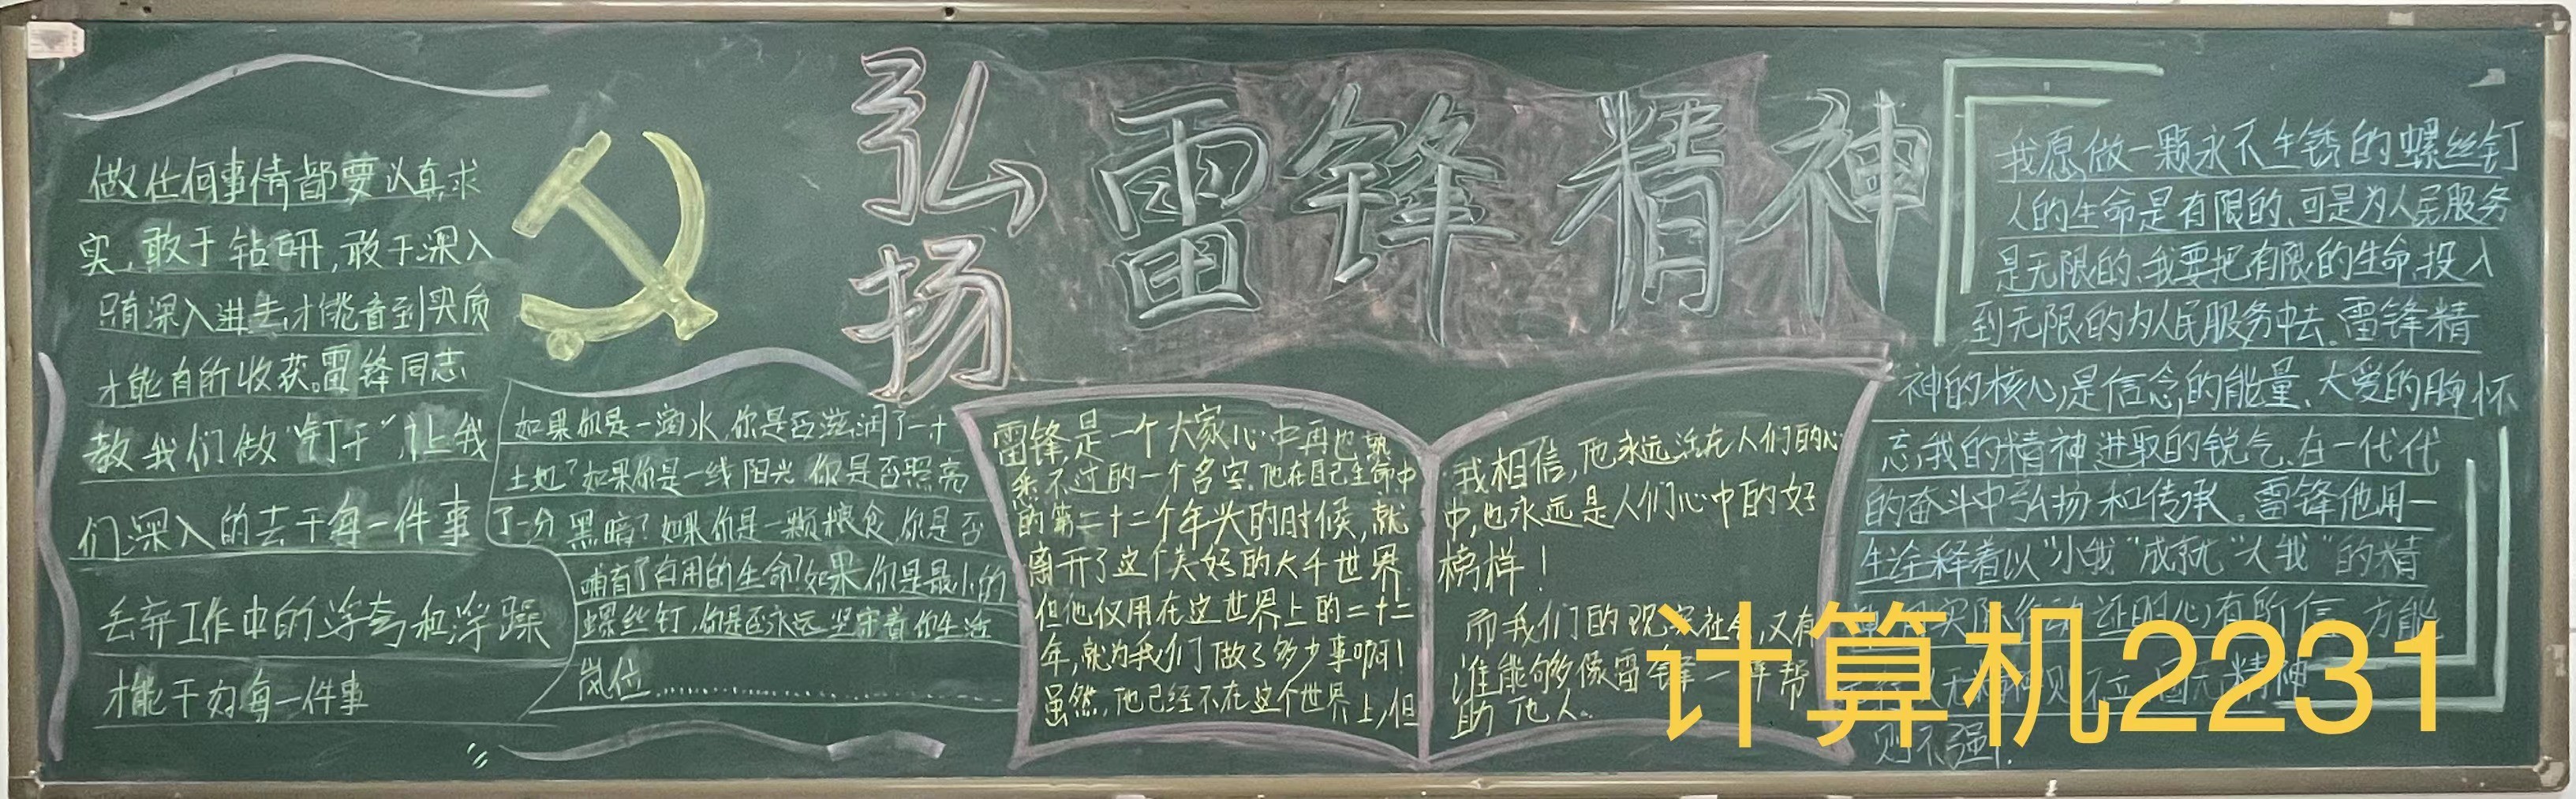 弘扬
雷锋精神
做任何事情都要认真求
实,敢于钻研,敢于深入
只有深入进去,才能看到实质
才能有所收获。雷锋同志
教我们做“钉子”,让我
们深入的去干每一件事
丢弃工作中的浮夸和浮躁
才能干好每一件事
如果你是一滴水,你是否滋润了一寸
土地?如果你是一线阳光,你是否照亮
了一分黑暗?如果你是一颗粮食,你是否
哺育了有用的生命?如果你是最小的
螺丝钉,你是否永远坚守着你生活
岗位……………………
雷锋,是一个大家心中再也熟
悉不过的一个名字.他在自己生命中
的第二十二个年头的时候,就
离开了这个美好的大千世界
但他仅用在这世界上的二十二
年,就为我们做了多少事啊!
虽然,他已经不在这个世界上,但
我相信,他永远活在人们的心
中,也永远是人们心中的好
榜样!
而我们的现实社会,又有
谁能够像雷锋一样帮
助他人。
我愿做一颗永不生锈的螺丝钉
人的生命是有限的、可是为人民服务
是无限的、我要把有限的生命,投入
到无限的为人民服务中去。雷锋精
神的核心,是信念的能量、大爱的胸怀
忘我的精神、进取的锐气、在一代代
的奋斗中弘扬和传承。雷锋他用一
生诠释着以“小我”成就“大我”的精
证明心有所信,方能
国无精神
则不强!
计算机2231